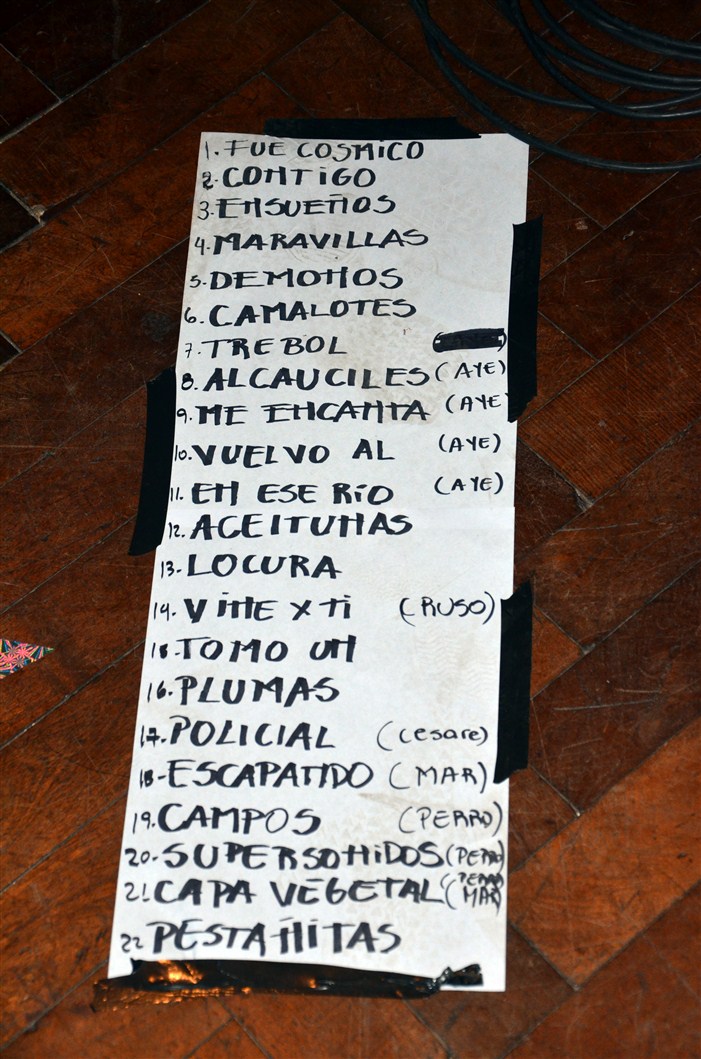 1. FUE COSMICO
2. CONTIGO
3. ENSUEÑOS
4. MARAVILLAS
5. DEMONOS
6. CAMALOTES
7. TREBOL
8. ALCAUCILES (AYE)
9. ME ENCANTA (AYE
10. VUELVO AL (AYE)
11. EN ESE RiO (AYE)
12. ACEITUNAS
13. LOCURA
14. ViNE X Ti (RUSO)
15. TOMO UN
16. PLUMAS
17. POLICIAL (Cesare)
18. ESCAPANDO (MAR)
19. CAMPOS (PERRO)
20. SUPERSONiDOS (PERRO)
21. CAPA VEGETAL (PERRO MAR)
22 PESTAÑiTAS